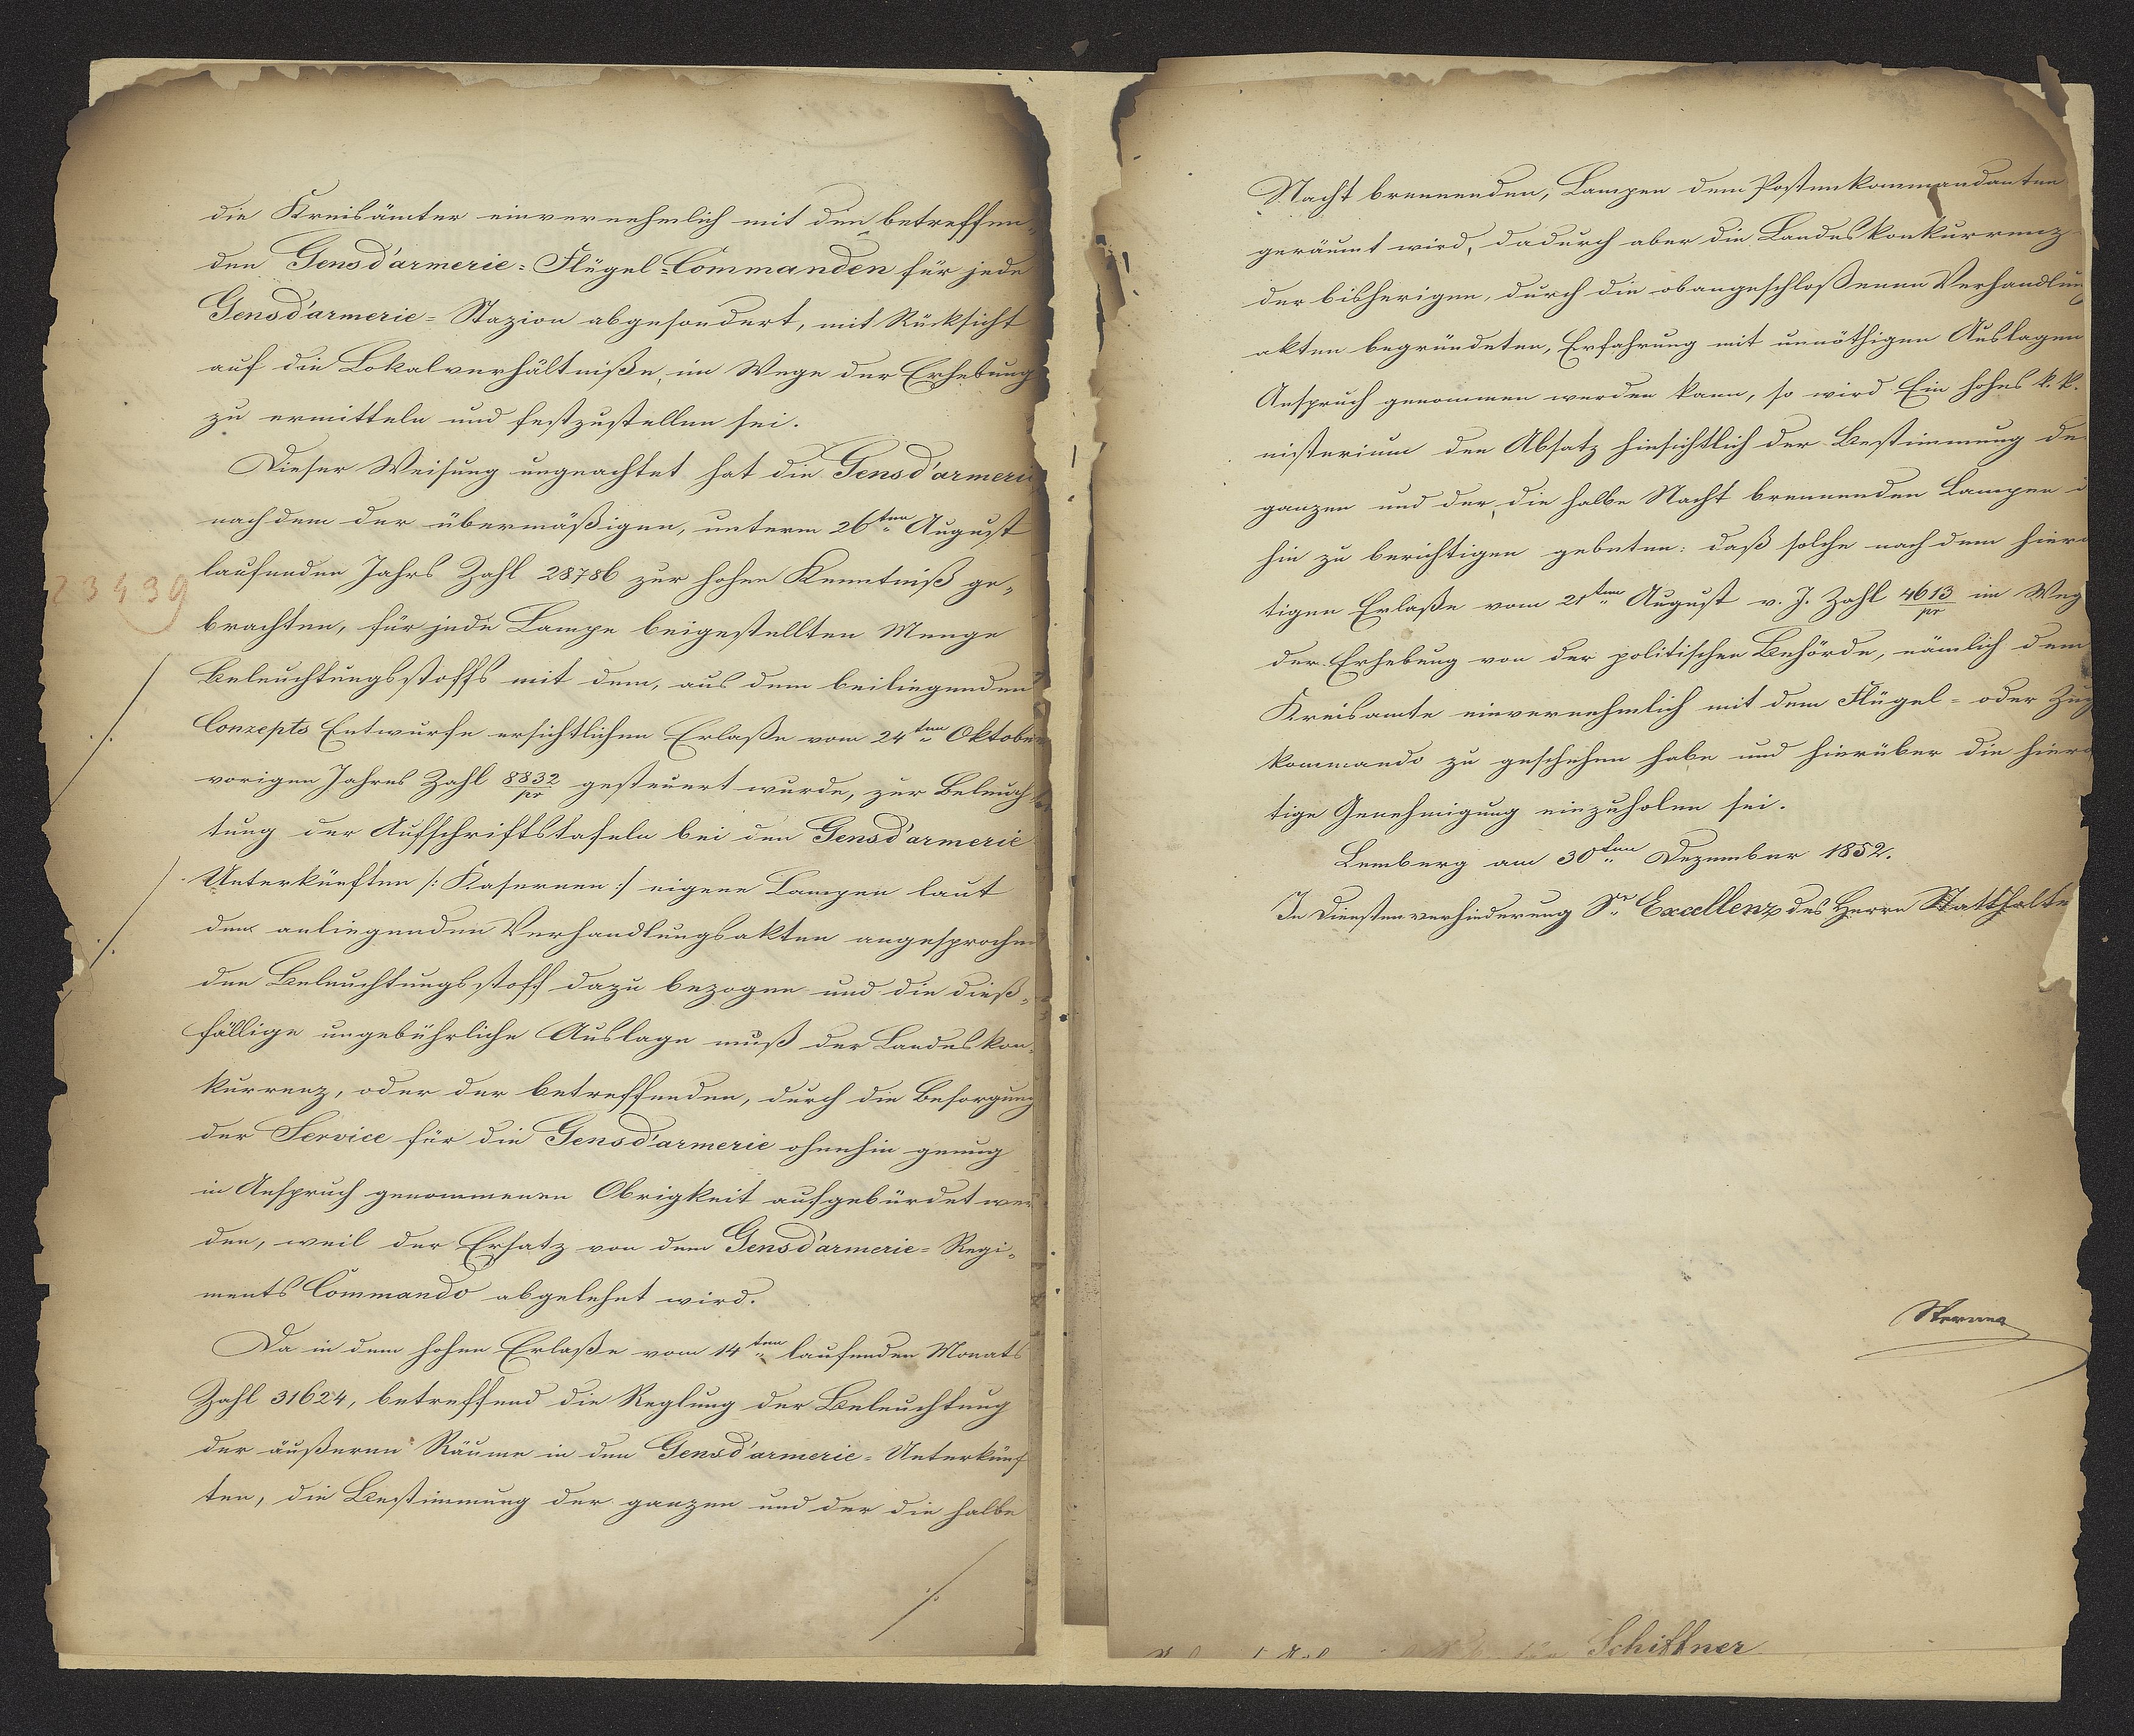 die Kreisämter einvernehmlich mit den betreffen,
den Gensd'armerie=Flügel=Commanden für jede
Gensd'armerie=Stazion abgesondert, mit Rücksicht
auf die Lokalverhältniße, im Wege der Erhebung
zu ermitteln und festzustellen sei.
Dieser Weisung ungeachtet hat die Gensd'armeri
nachdem der übermäßigen, unterm 26ten August
23439
laufenden Jahrs Zahl 28786 zur hohen Kenntniß ge,
brachten, für jede Lampe beigestellten Menge
Beleuchtungsstoffs mit dem, aus dem beiliegenden
Conzepts Entwurfe ersichtlichen Erlaße vom 24ten Oktober
vorigen Jahres Zahl 8832/pr gesteuert wurde, zur Beleuch
tung der Aufschriftstafeln bei den Gensd'armerie
Unterkünften /: Kasernen :/ eigene Lampen laut
den anliegenden Verhandlungsakten angesprochen
den Beleuchtungsstoff dazu bezogen und die dieß,
fällige ungebührliche Auslage muß der Landeskon,
kurrenz, oder der betreffenden, durch die Besorgung
der Service für die Gensd'armerie ohnehin genug
in Anspruch genommenen Obrigkeit aufgebürdet wer
den, weil der Ersatz von dem Gensd'armerie=Regi,
ments Commando abgelehnt wird.
Da in dem hohen Erlaße vom 14ten laufenden Monats
Zahl 31624, betreffend die Reglung der Beleuchtung
der äußeren Räume in den Gensd'armerie=Unterkünf
ten, die Bestimmung der ganzen und der die halbe
./.
Nacht brennenden, Lampen dem Postenkommandanten
geräumt wird, dadurch aber die Landeskonkurrenz
der bisherigen, durch die obangeschloßenen Verhandlung
akten begründeten, Erfahrung mit unnöthigen Auslagen
Anspruch genommen werden kann, so wird Ein hohes k. k.
nisterium den Absatz hinsichtlich der Bestimmung de
ganzen und der, die halbe Nacht brennenden Lampen d
hin zu berichtigen gebeten: daß solche nach dem hiero
tigen Erlaße vom 21ten August v. J. Zahl 4613/pr im Weg
der Erhebung von der politischen Behörde, nämlich dem
Kreisamte einvernehmlich mit dem Flügel= oder Zug
kommando zu geschehen habe und hierüber die hiero
tige Genehmigung einzuholen sei.
Lemberg am 30ten Dezember 1852.
In Diensten verhinderung Sr Excellenz des Herrn Statthalte
Schiffner